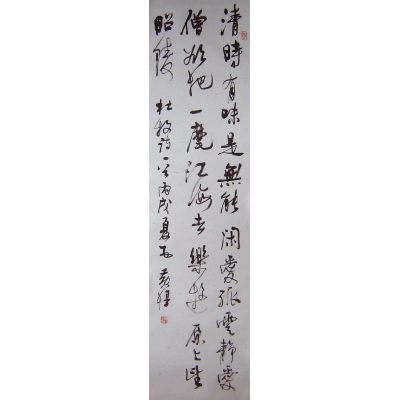 清時有味是無能閑愛孤雲靜愛
僧欲把一麾江海去樂遊原上望
昭陵 杜牧詩一首丙戌夏